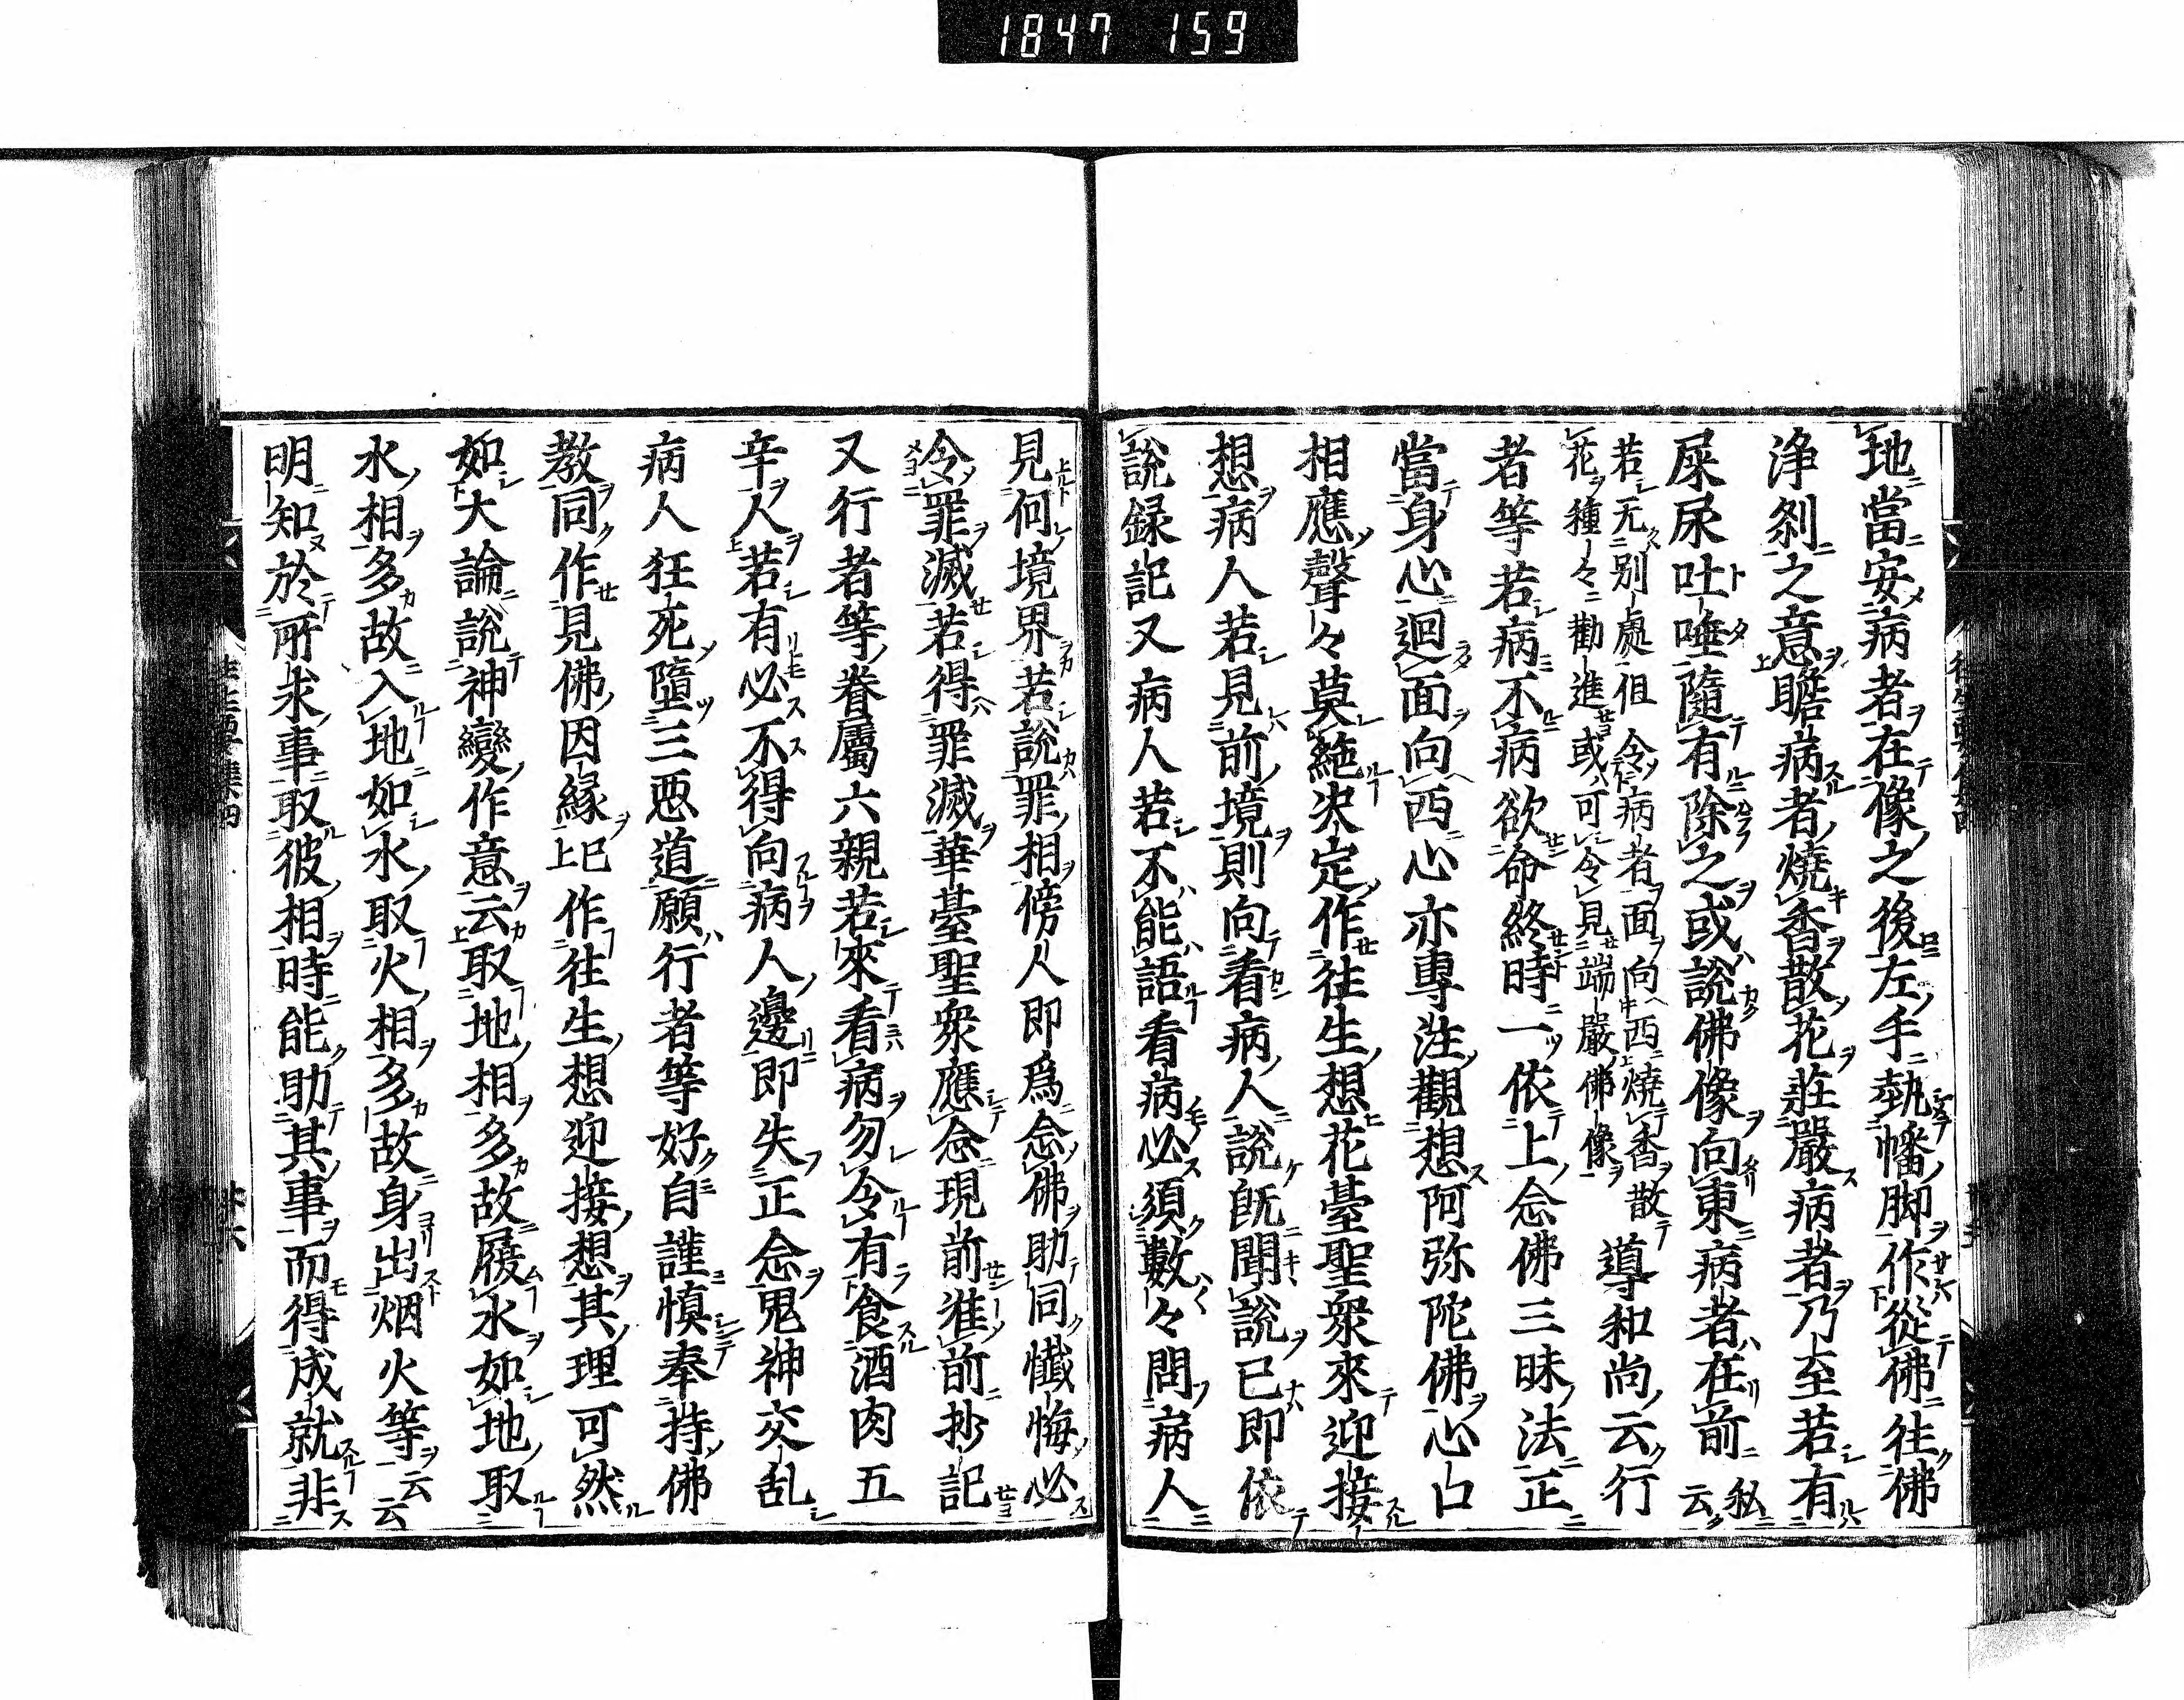 1847 159
地當安病者在像之後左手執幡脚作從佛往佛
浄刹之意瞻病者燒香散花莊嚴病者乃至若有
屎尿吐唾隨有除之或説佛像向東病者在前私云
若无別處但令病者面向西燒香散
花種々勸進或可令見端嚴佛像
導和尚云行
者等若病不病欲命終時一依上念佛三昧法正
當身心迴面向西心亦專注觀想阿弥陀佛心口
相應聲々莫絶决定作往生想花臺聖衆來迎接
想病人若見前境則向看病人説既聞説已即依
説録記又病人若不能語看病必須數々問病人
見何境界若説罪相傍人即爲念佛助同懺悔必
令罪滅若得罪滅華臺聖衆應念現前准前抄記
又行者等眷屬六親若來看病勿令有食酒肉五
辛人若有必不得向病人邊即失正念鬼神交乱
病人狂死墮三悪道願行者等好自謹慎奉持佛
教同作見佛因縁已上作往生想迎接想其理可然
如大論説神變作意云取地相多故履水如地取
水相多故入地如水取火相多故身出烟火等云云
明知於所求事取彼相時能助其事而得成就非